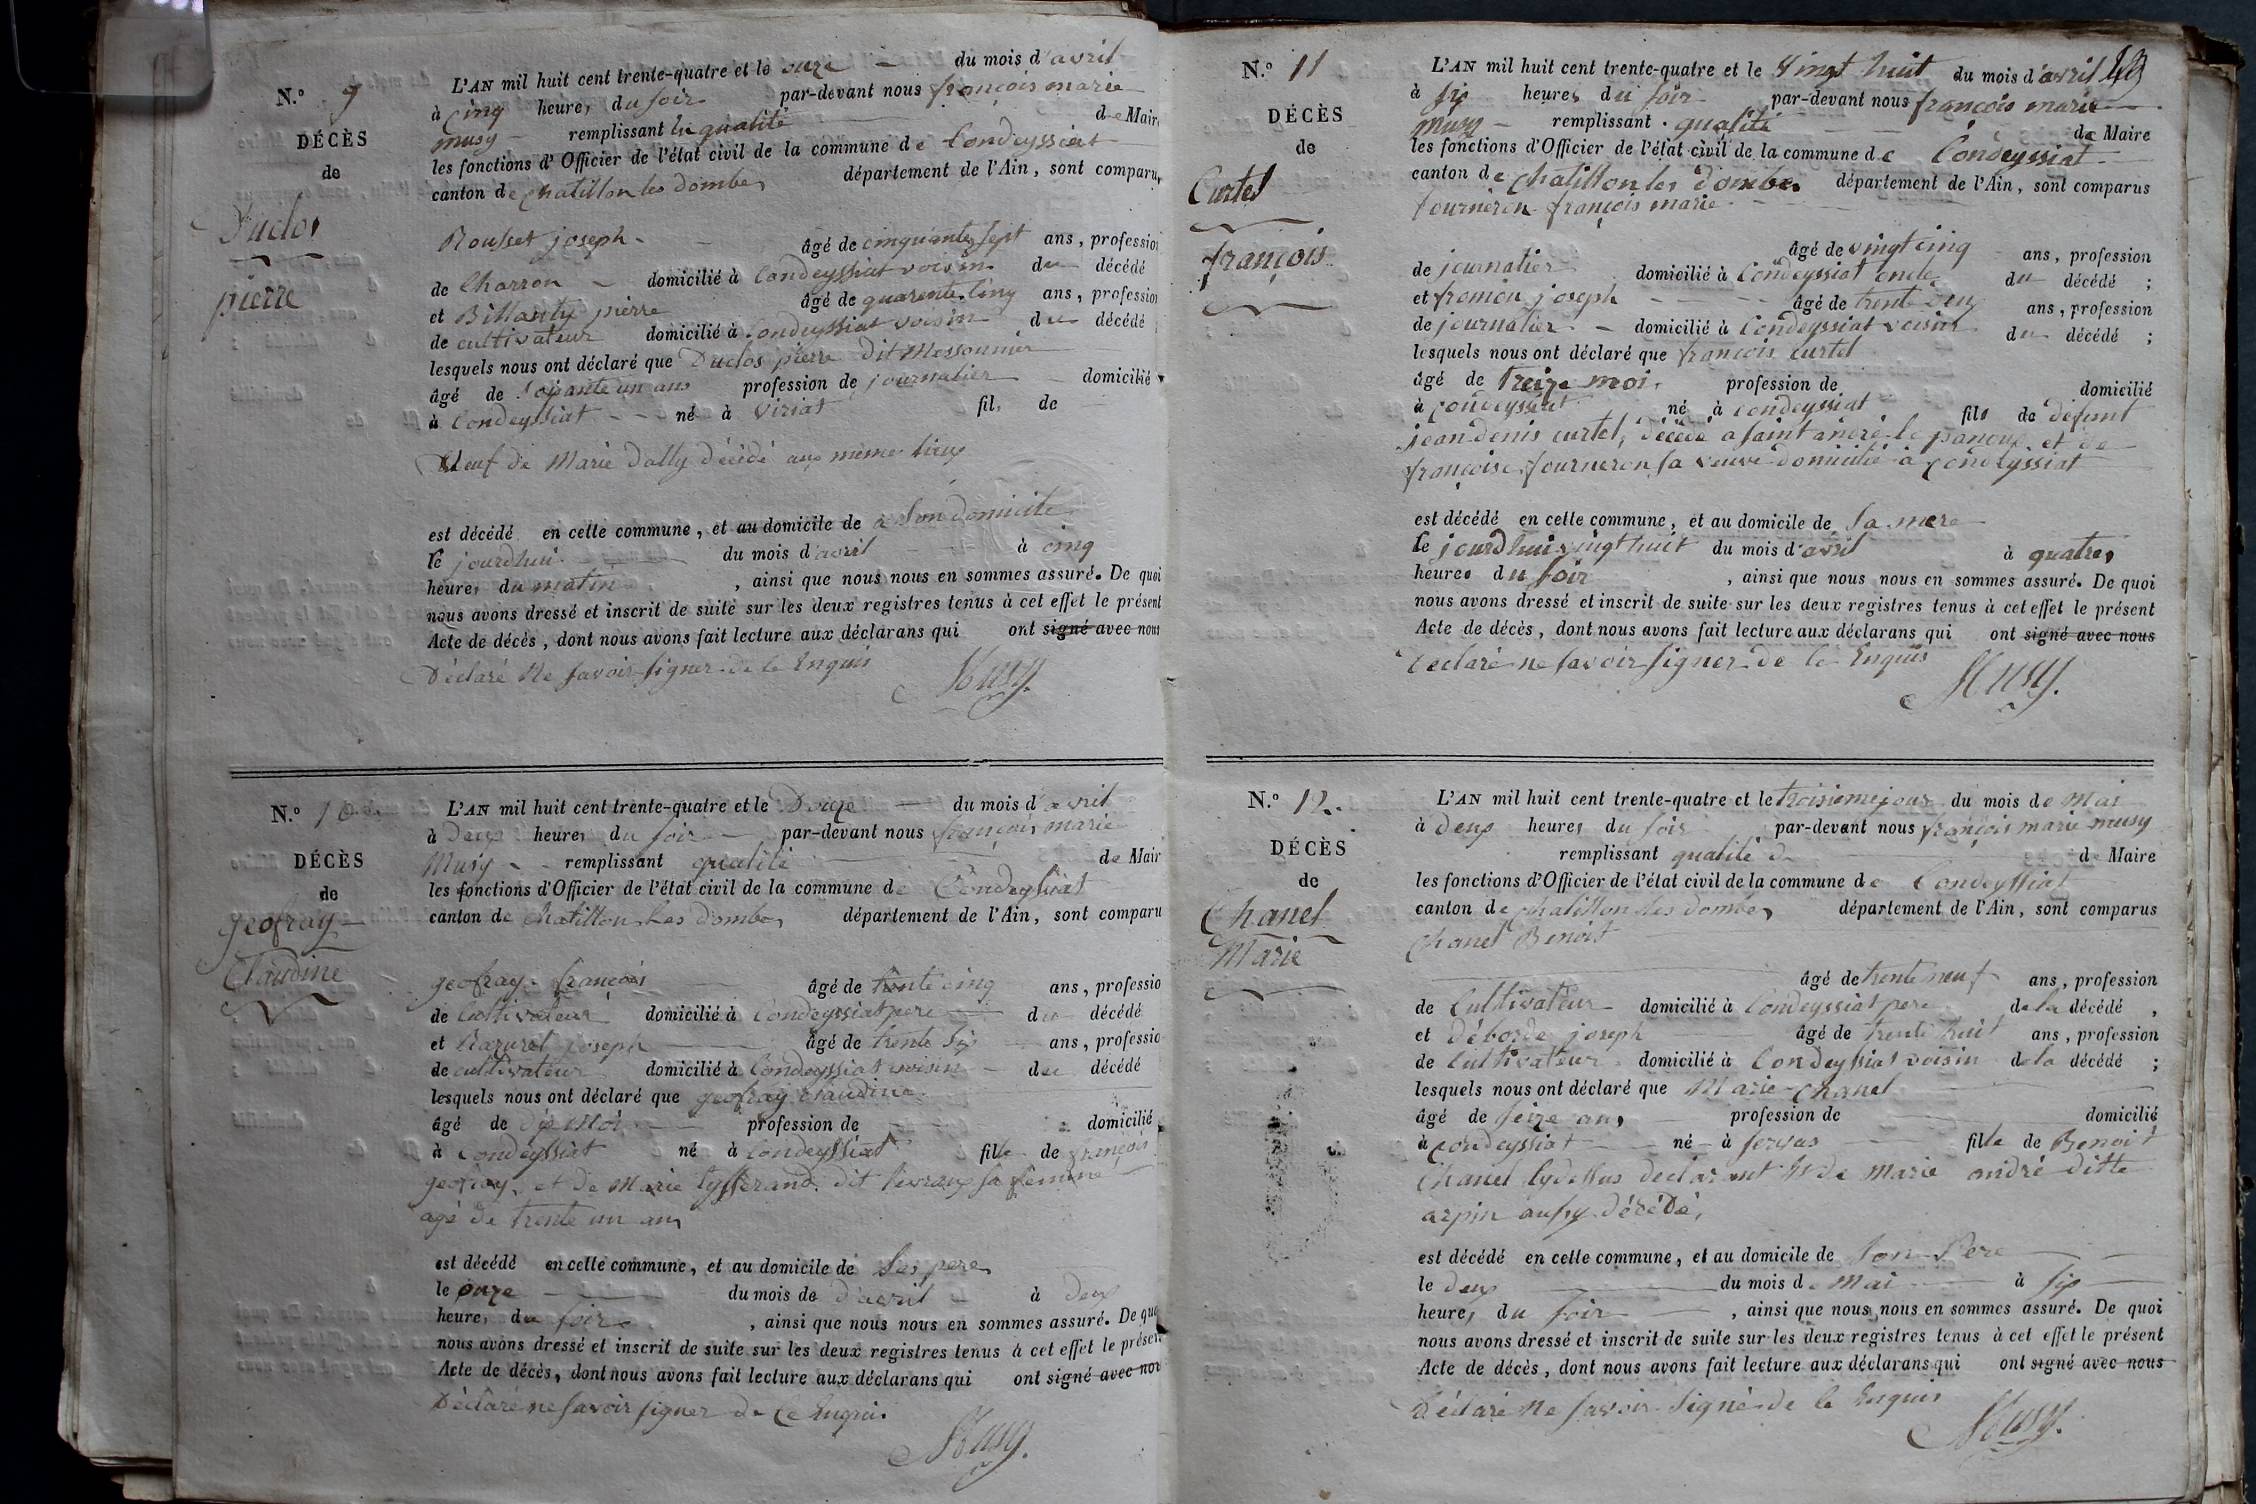 N.° 9
DÉCÈS
de
Duclos
pierre
L'AN mil huit cent trente-quatre et le onze du mois d'avril
à Cinq heures du soir par-devant nous françois marie
musy remplissant la qualité de Maire
les fonctions d'Officier de l'état civil de la commune de Condeyssiat
canton de chatillon les dombes département de l'Ain, sont comparus
Rousset joseph âgé de cinquante sept ans, profession
de Charron domicilié à Condeyssiat voisin du décédé
et Billoux pierre âgé de quarente cinq ans, profession
de cultivateur domicilié à Condeyssiat voisin du décédé
lesquels nous ont déclaré que Duclos pierre dit Messonnier
âgé de soixante un ans profession de journalier domicilié
à Condeyssiat né à viriat fils de
Veuf de Marie Dally décédé aux mêmes lieux
est décédé en celle commune, et au domicile de à son domicile
le jourdhui du mois d'avril à cinq
heures du matin, ainsi que nous nous en sommes assuré. De quoi
nous avons dressé et inscrit de suite sur les deux registres tenus à cet effet le présent
Acte de décès, dont nous avons fait lecture aux déclarans qui ont signé avec nous
Déclaré Ne savoir signer de le Enquis
Musy.
N.° 10
DÉCÈS
de
geofray
Claudine
L'AN mil huit cent trente-quatre et le Douze du mois d'avril
à Deux heures du soir par-devant nous françois marie
Musy remplissant qualité de Mair
les fonctions d'Officier de l'état civil de la commune de Condeyssiat
canton de Chatillon Les dombes département de l'Ain, sont comparu
geofray françois âgé de trente cinq ans, professio
de Cultivateur domicilié à Condeyssiat pere du décédé
et joseph âgé de trente six ans, professio
de cultivateur domicilié à Condeyssiat voisin du décédé
lesquels nous ont déclaré que geofray Claudine
âgé de dix Moi profession de domicilié
à Condeyssiat né à Condeyssiat fille de françois
geofray, et de Marie tysserand dit sa femme
agé de trente un ans
est décédé en celle commune, et au domicile de Ses pere
le onze du mois de d'avril à Deux
heures du soir, ainsi que nous nous en sommes assuré. De quo
nous avons dressé et inscrit de suite sur les deux registres tenus à cet effet le présen
Acte de décès, dont nous avons fait lecture aux déclarans qui ont signé avec nou
Déclaré ne savoir signer de ce Enquis
Musy.
N.° 11
DÉCÈS
de
Curtel
françois
L'AN mil huit cent trente-quatre et le Vingt huit du mois d'avril
à six heures du soir par-devant nous françois marie
musy remplissant qualité de Maire
les fonctions d'Officier de l'état civil de la commune de Condeyssiat
canton de chatillon les dombes département de l'Ain, sont comparus
fourneron françois marie
âgé de vingt cinq ans, profession
de journalier domicilié à Condeyssiat oncle du décédé ;
et joseph âgé de trente deux ans, profession
de journalier domicilié à Condeyssiat voisin du décédé ;
lesquels nous ont déclaré que françois curtel
âgé de treize mois profession de domicilié
à condeyssiat né à condeyssiat fils de defunt
jean denis curtel, décédé a saint andré le panoux et de
françoise fourneron sa veuve domicilié à condeyssiat
est décédé en celle commune, et au domicile de sa mere
le jourdhui vingt huit du mois d'avril à quatre
heures du soir, ainsi que nous nous en sommes assuré. De quoi
nous avons dressé et inscrit de suite sur les deux registres tenus à cet effet le présent
Acte de décès, dont nous avons fait lecture aux déclarans qui ont signé avec nous
Declaré ne savoir signer de le Enquis
Musy.
N.° 12
DÉCÈS
de
Chanel
Marie
L'AN mil huit cent trente-quatre et le troisieme jour du mois de Mai
à deux heures du soir par-devant nous françois marie musy
remplissant qualité de Maire
les fonctions d'Officier de l'état civil de la commune de Condeyssiat
canton de chatillon les dombes département de l'Ain, sont comparus
Chanel Benoit
âgé de trente neuf ans, profession
de Cultivateur domicilié à Condeyssiat pere de la décédé ,
et Déborde joseph âgé de trente huit ans, profession
de Cultivateur domicilié à Condeyssiat voisin de la décédé ;
lesquels nous ont déclaré que Marie Chanel
âgé de seize ans profession de domicilié
à condeyssiat né à servas fille de Benoit
Chanel cydessus declarant & de Marie andré ditte
arpin aussy Décédé,
est décédé en celle commune, et au domicile de son Pere
le deux du mois de Mai à six
heures du soir, ainsi que nous nous en sommes assuré. De quoi
nous avons dressé et inscrit de suite sur les deux registres tenus à cet effet le présent
Acte de décès, dont nous avons fait lecture aux déclarans qui ont signé avec nous
Déclaré Ne savoir signé de le Enquis
Musy.